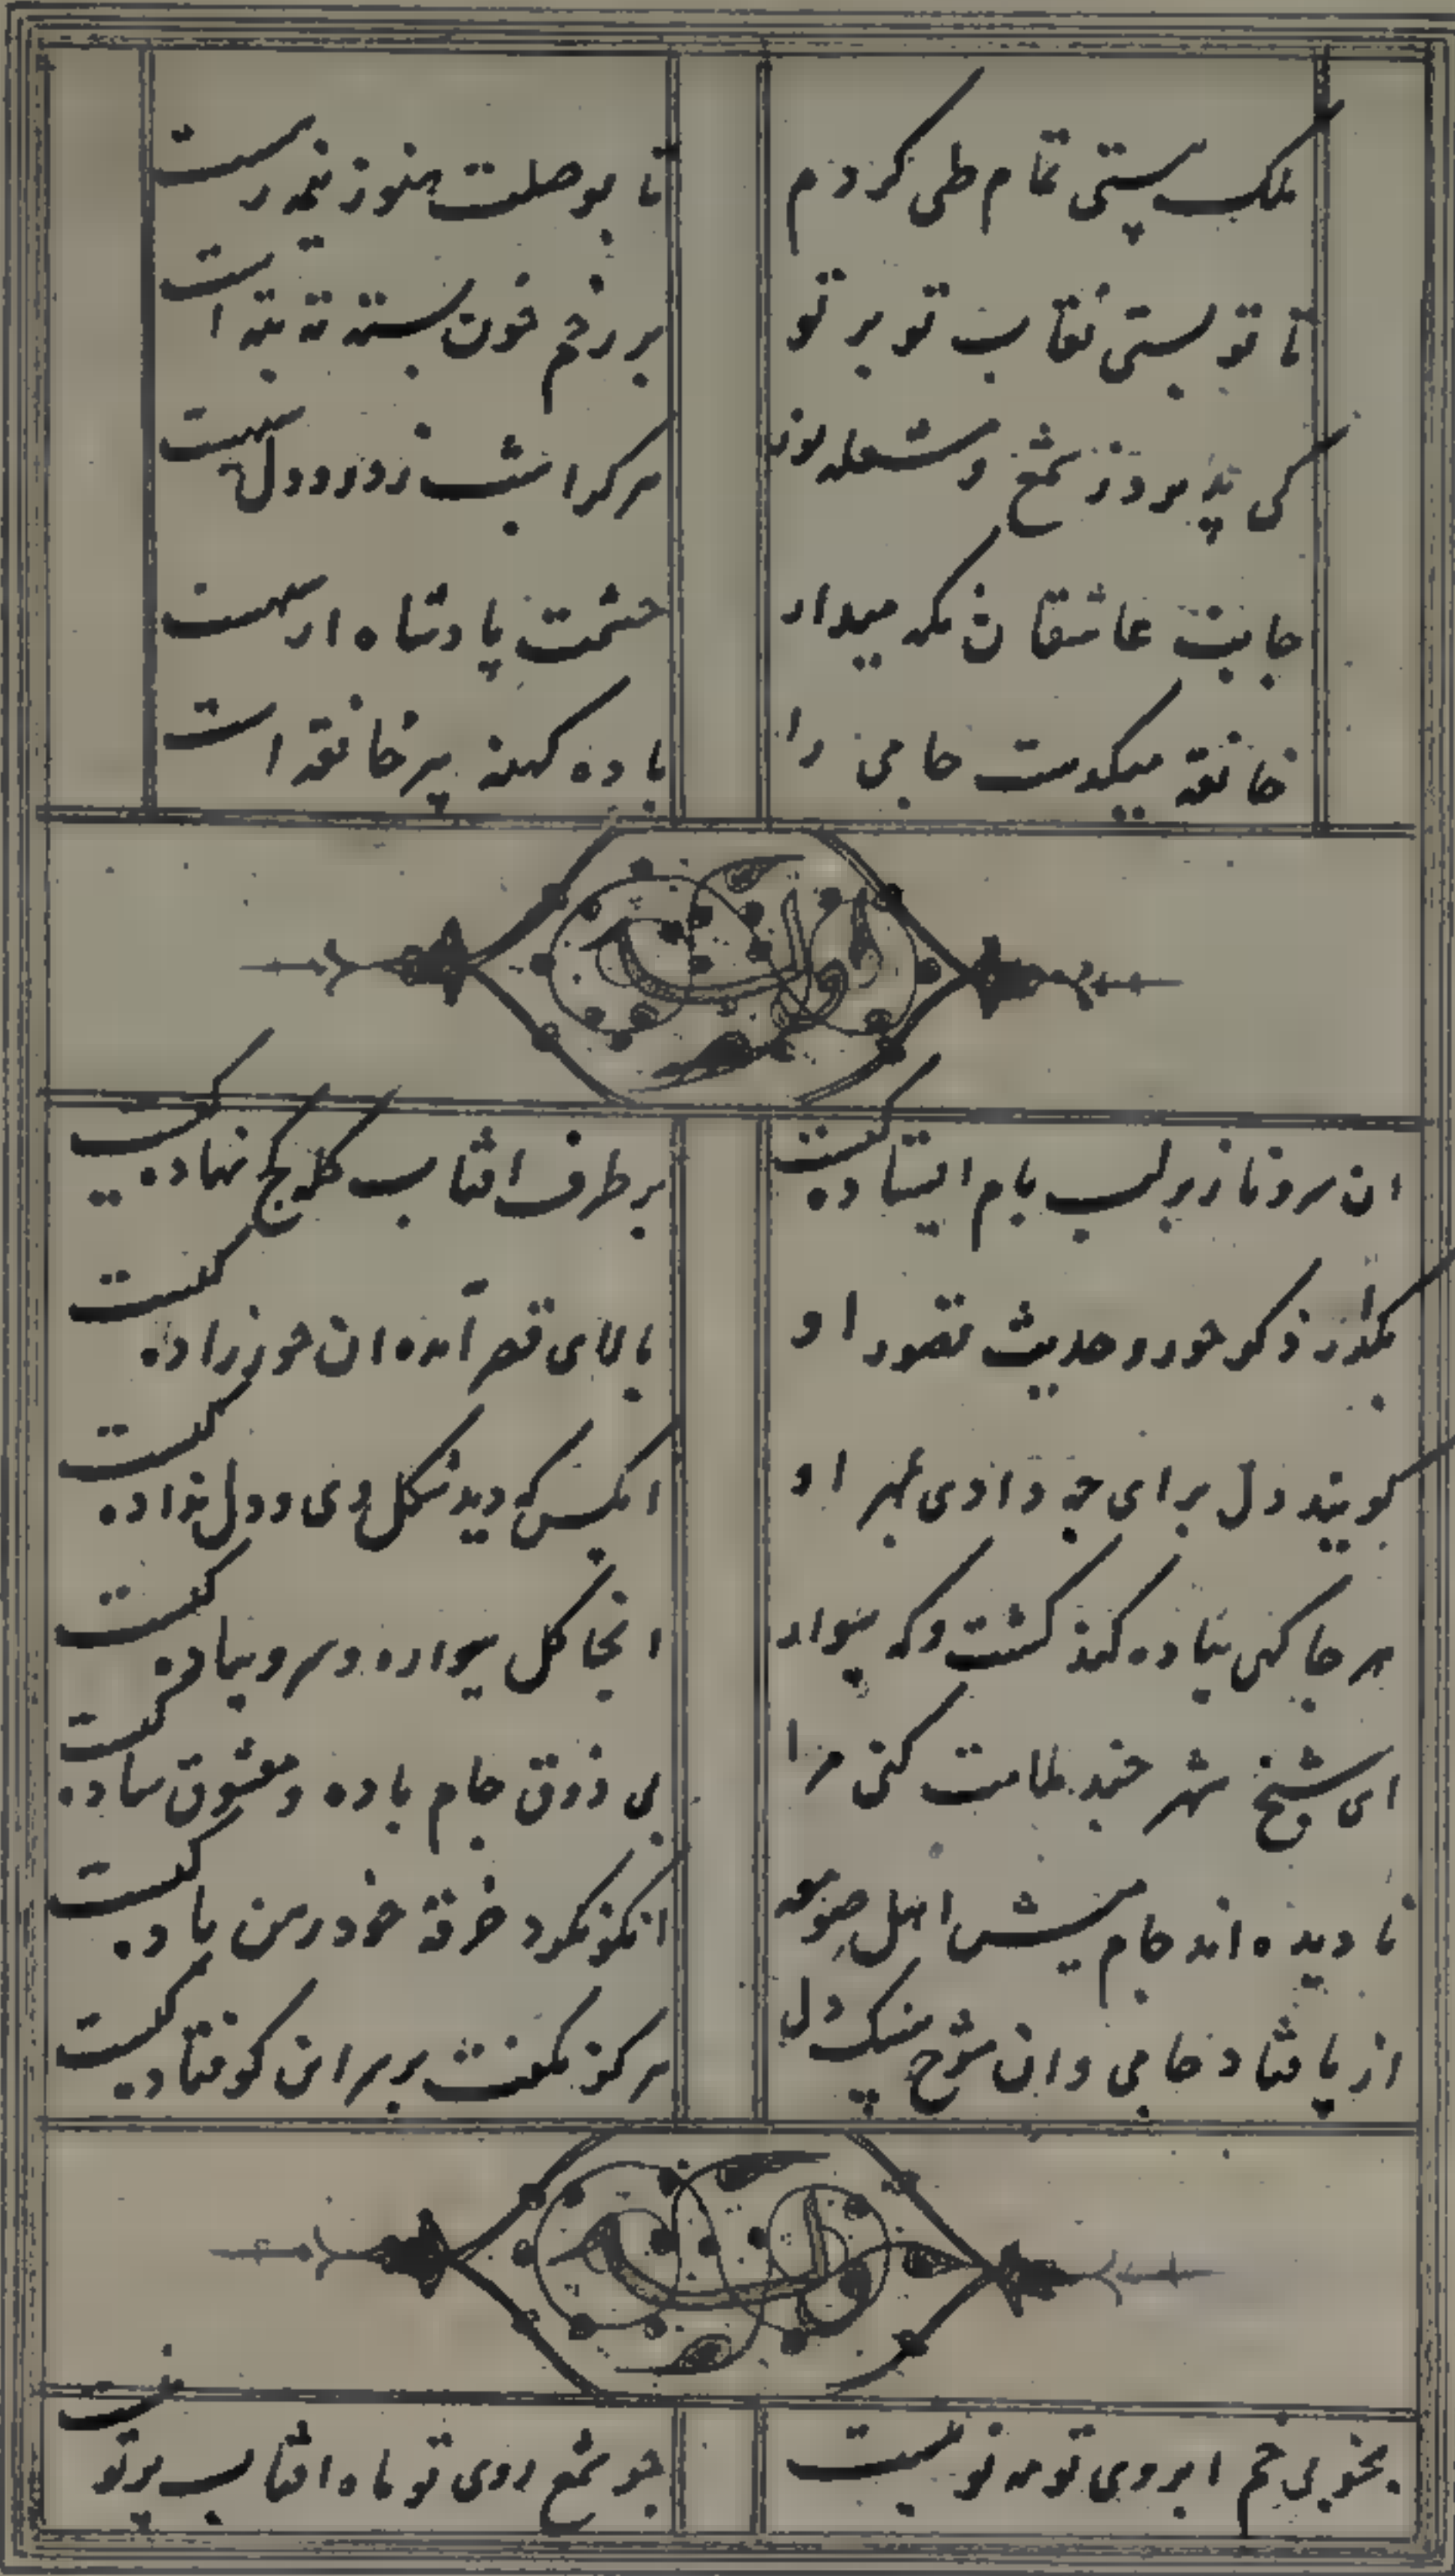 ملک هستی تمام طی کردم تا بوصلت هنوز نیم رهست
تا تو بستی نقاب تو بر تو بر رخم خون بسته ته بته است
کی پذیرد ز شمع و مشعله نور هرکرا شب ز دود دل سیهست
جانب عاشقان نکه میدار حشمت پادشاه از سپهست
خانقه میکدست جامی را باده کهنه پیر خانقه است
وله
ان سرو ناز بر لب بام ایستاده کیست بر طرف افتاب کله کج نهاده کیست
بکذر ز ذکر حور و حدیث قصور او بالای قصر آمده ان حورزاده کیست
کویند دل برای چه دادی بمهر او انکس که دید شکل وی و دل نداده کیست
هر جا کهی پیاده کند کشت و که سوار انجا کل سواره و سرو پیاده کیست
ای شیخ شهر چند ملامت کنی مرا بی ذوق جام باده و معشوق ساده کیست
نادیده اند جام میش اهل صومعه انکو نکرد خرقه خود رهن باده کیست
از پا فتاد جامی وان شوخ سنک دل هرکز نکفت بر سر این کو فتاده کیست
وله
بخوبی خم ابروی تو مه نو نیست چو شمع روی تو ماه افتاب پرتو نیست